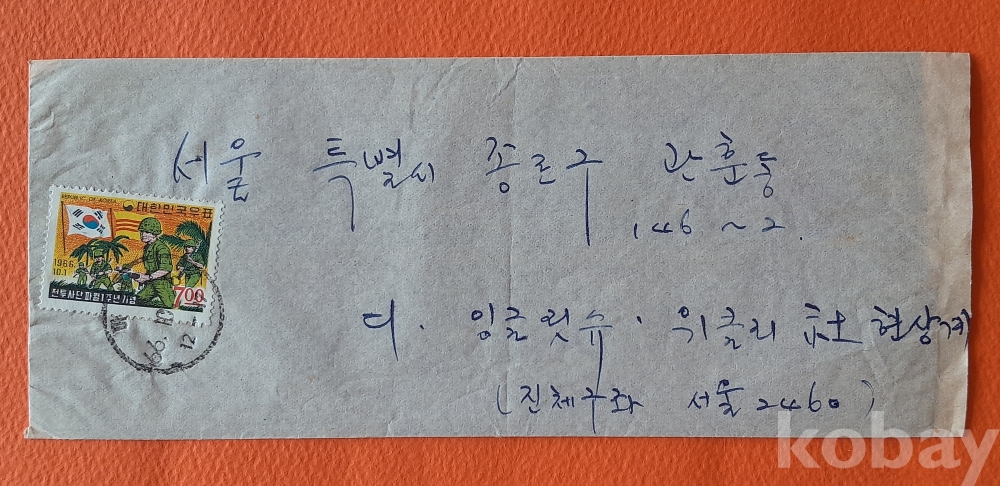 서울 특별시 종로구 관훈동
146~2.
REPUBLIC OF KOREA
대한민국우표
1966.
10.1
7.00
전투사단파월1주년기념
66. 10.
12
디. 잉글릿슈. 위클리 社 현상계
(진체구좌 서울 2460)
kobay